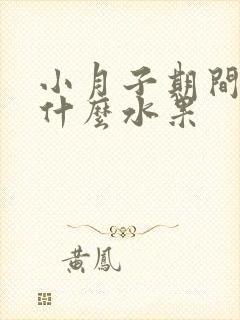 小月子期間
什麼水果
黃鳳